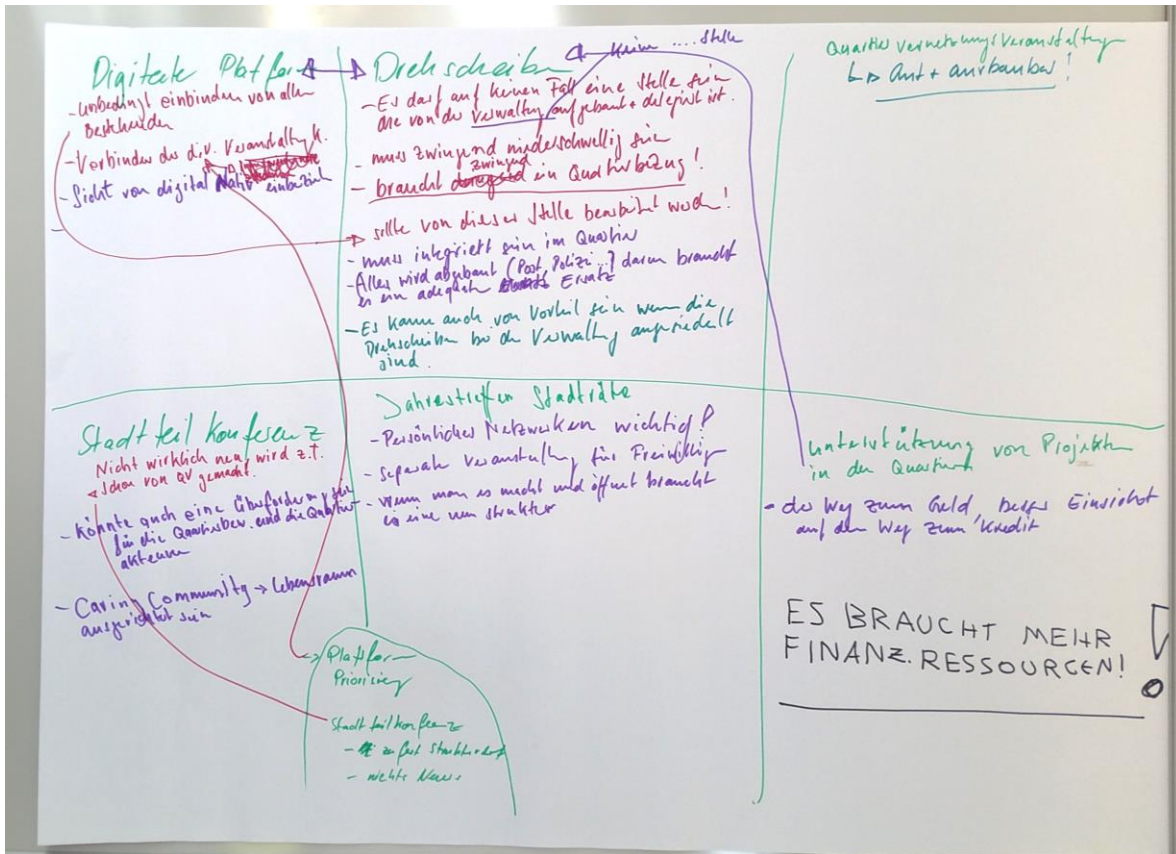 Digitale Plattform
- unbedingt einbinden von allen
Bestehenden
- Verbinden der div. Veranstaltung K.
- Sicht von digital Nativ einbezieh
Drehscheiben
keine .... Stelle
- Es darf auf keinen Fall eine Stelle sein
die von der Verwaltung aufgebaut + delegiert ist.
- muss zwingend niederschwellig sein
- braucht zwingend ein Quartierbezug!
sollte von dieser Stelle bearbeitet werden!
- muss integriert sein im Quartier
- Alles wird abgebaut (Post, Polizei...) darum braucht
es ein adequaten Ersatz
- Es kann auch von Vorteil sein wenn die
Drehscheiben bei der Verwaltung angesiedelt
sind.
Quartiervernetzungsveranstaltung
Gut + ausbaubar!
Stadtteilkonferenz
Nicht wirklich neu, wird z.T.
schon von QV gemacht.
- Könnte auch eine Überforderung sein
für die Quartierbev. und die Quartier-
akteure
- Caring Community → Lebensraum
ausgerichtet sein
Jahrestreffen Stadträte
- Persönliches Netzwerken wichtig!
- separate Veranstaltung für Freiwillige
- wenn man es macht und öffnet braucht
es eine neue Struktur
Unterstützung von Projekten
in den Quartieren
- der Weg zum Geld, bessere Einsicht
auf den Weg zum Kredit
ES BRAUCHT MEHR
FINANZ. RESSOURCEN!
Plattform
Priorisierung
Stadtteilkonferenz
- zu fest strukturiert
- nichts Neues